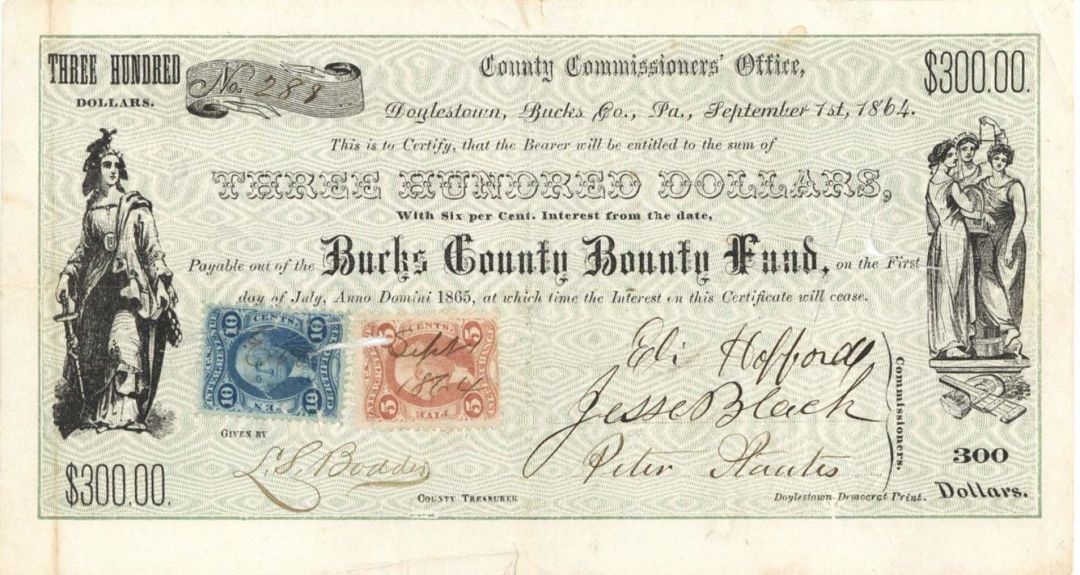 THREE HUNDRED
DOLLARS.
No. 288
County Commissioners' Office,
$300.00.
Doylestown, Bucks Co., Pa., September 1st, 1864.
This is to Certify, that the Bearer will be entitled to the sum of
THREE HUNDRED DOLLARS,
With Six per Cent. Interest from the date,
Payable out of the Bucks County Bounty Fund, on the First
day of July, Anno Domini 1865, at which time the Interest on this Certificate will cease.
10 CENTS 10
10 TEN 10
5 CENTS 5
Sept
1864
5 FIVE 5
Eli Hofford
Jesse Black
Peter
Commissioners.
GIVEN BY
COUNTY TREASURER
$300.00.
300
Dollars.
Doylestown Democrat Print.